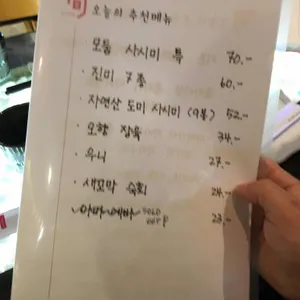 旬 오늘의 추천메뉴
모듬 사시미 특 70.-
· 진미 7종 60.-
· 자연산 도미 사시미 (9월) 52.-
· 오향 장육 34.-
· 우니 27.-
· 새꼬막 숙회 24.-
아마에비 SOLD OUT 23.-